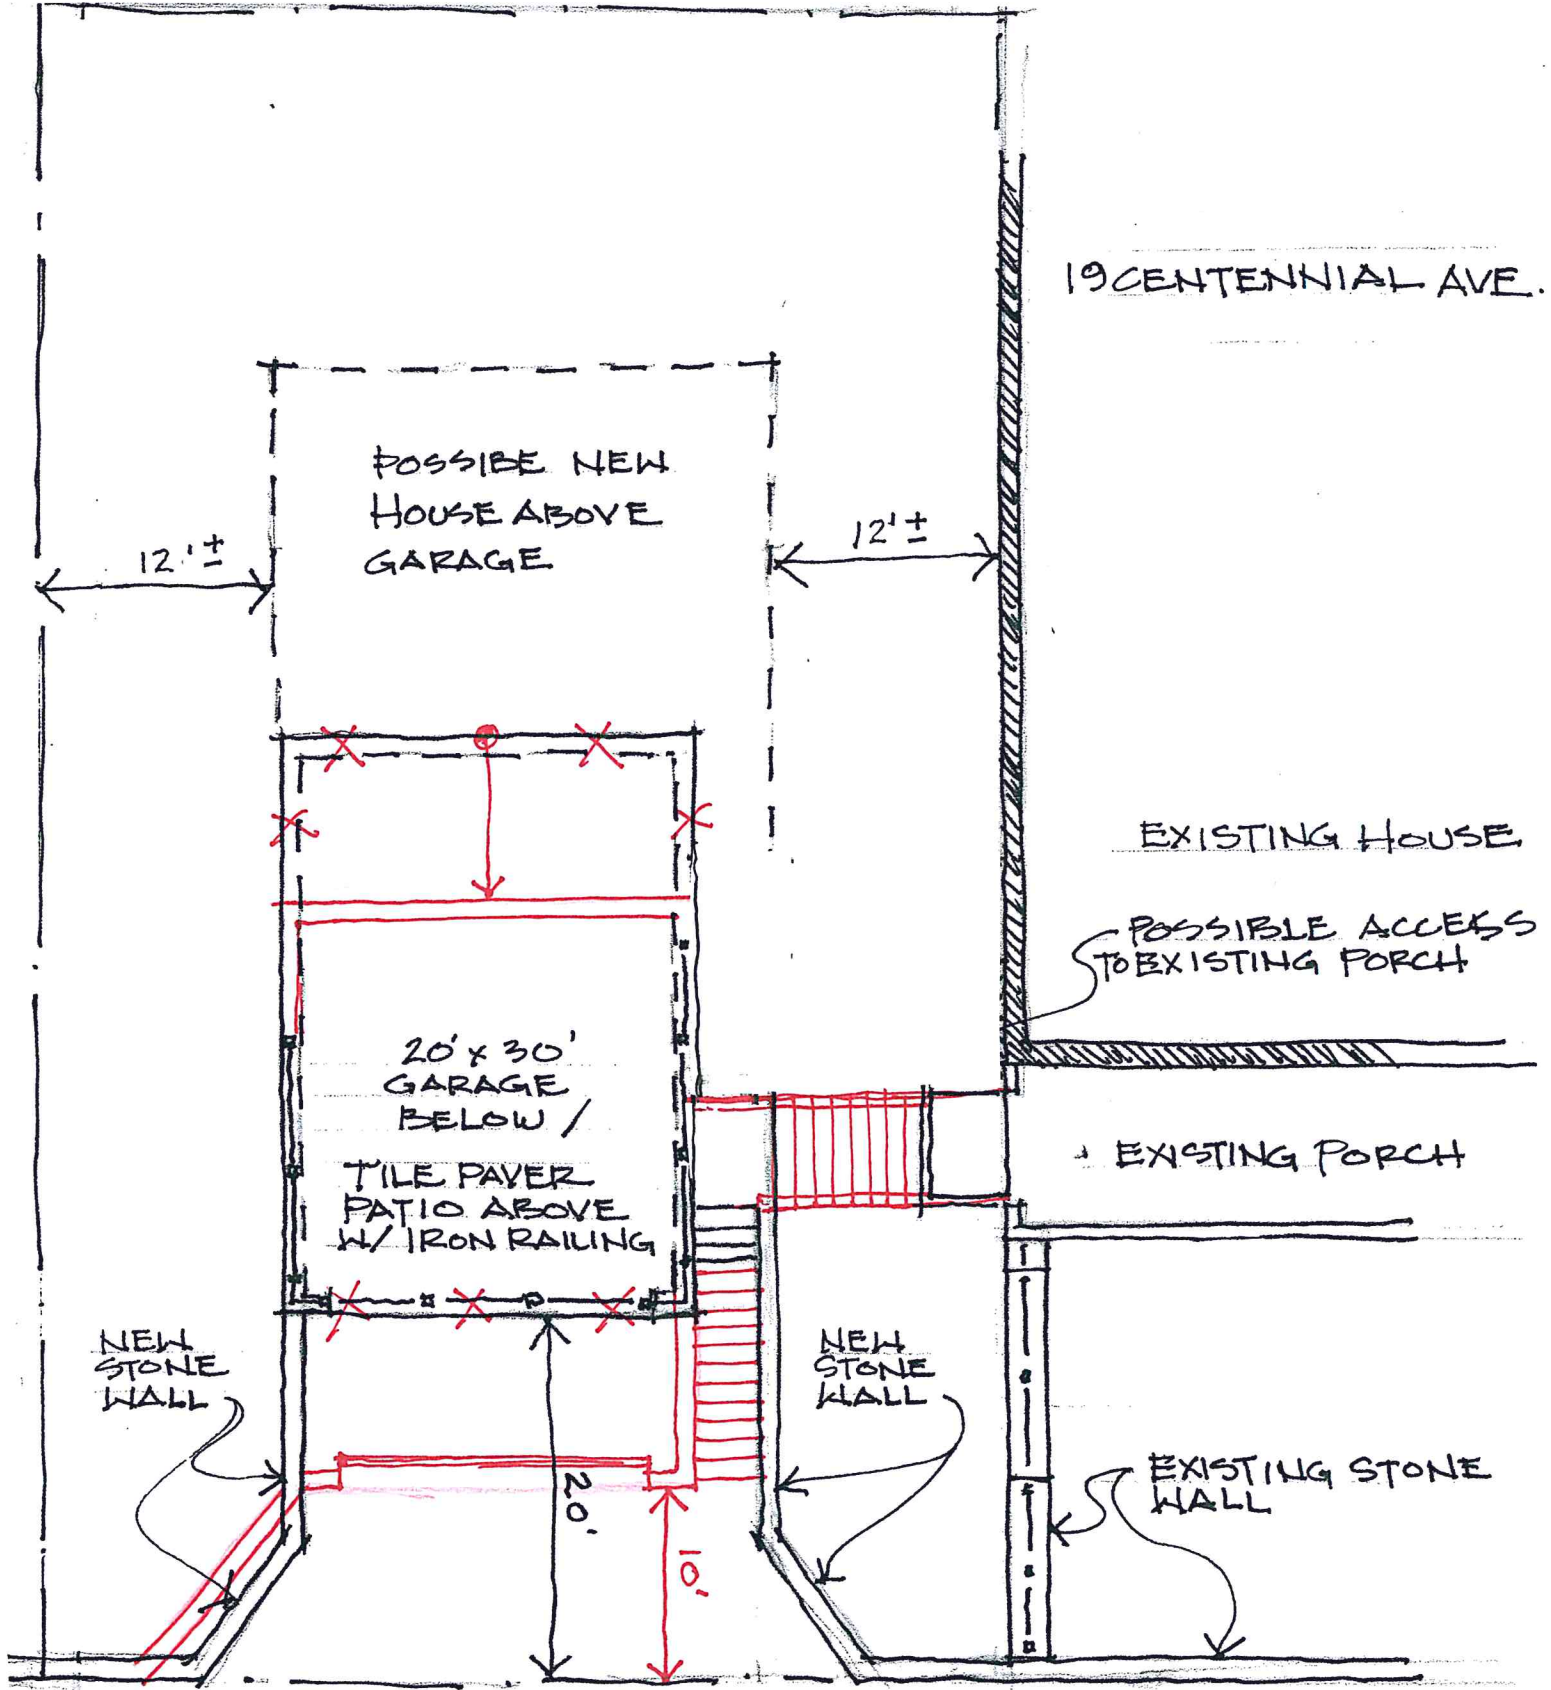 19 CENTENNIAL AVE.
POSSIBE NEW
HOUSE ABOVE
GARAGE
12'±
12'±
EXISTING HOUSE
POSSIBLE ACCESS
TO EXISTING PORCH
20' x 30'
GARAGE
BELOW /
TILE PAVER
PATIO ABOVE
W/ IRON RAILING
EXISTING PORCH
NEW
STONE
WALL
NEW
STONE
WALL
EXISTING STONE
WALL
20'
10'